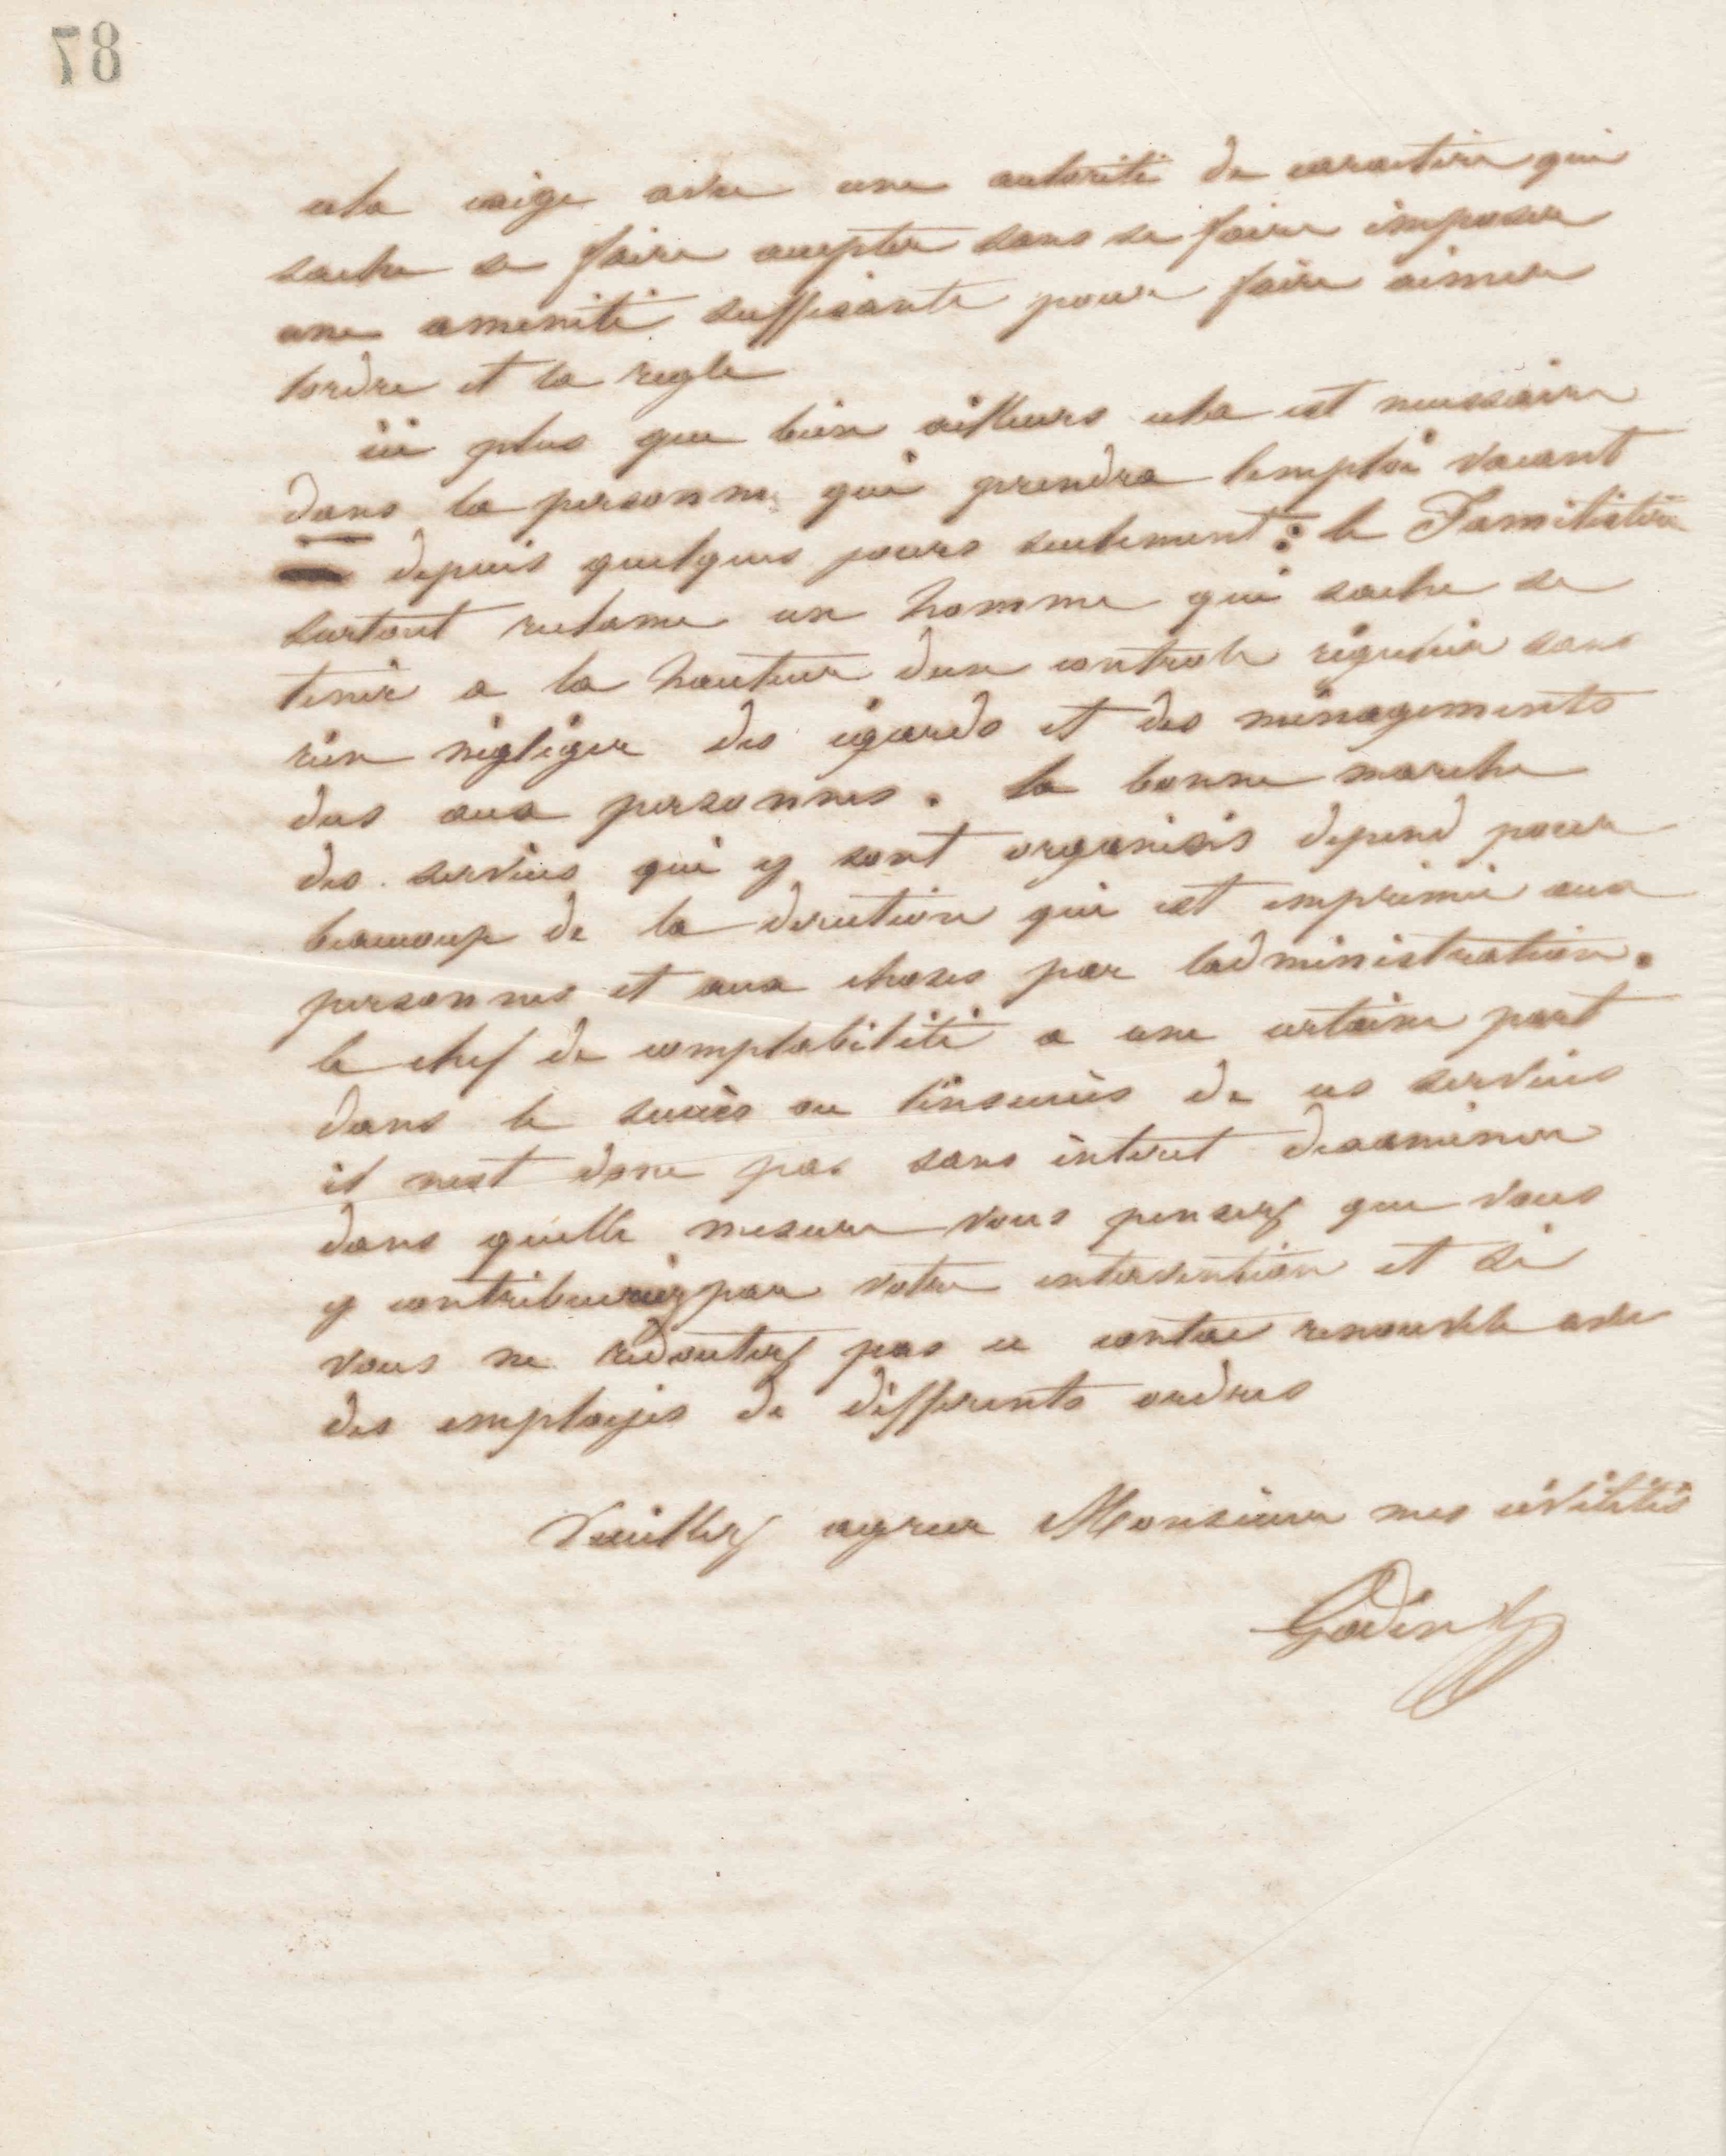 78
cela exige avec une autorité de caractère qui
sache se faire accepter sans se faire imposer
une amenité suffisante pour faire aimer
lordre et la regle
ici plus que bien ailleurs cela est necessaire
dans la personne qui prendra lemploi vacant
depuis quelques jours seulement : le Familistère
surtout reclame un homme qui sache se
tenir a la hauteur dun controle régulier sans
rien négliger des égards et des ménagements
dus aux personnes. la bonne marche
des services qui y sont organisés depend pour
beaucoup de la direction qui est imprimée aux
personnes et aux choses par ladministration.
le chef de comptabilité a une certaine part
dans le succès ou l'insuccès de ces services
il nest donc pas sans intéret dexaminer
dans quelle mesure vous pensez que vous
y contribueriez par votre intervention et si
vous ne redoutez pas ce contac renouvelé avec
des employés de différents ordres
Veuillez agreer Monsieur mes civilités
Godin